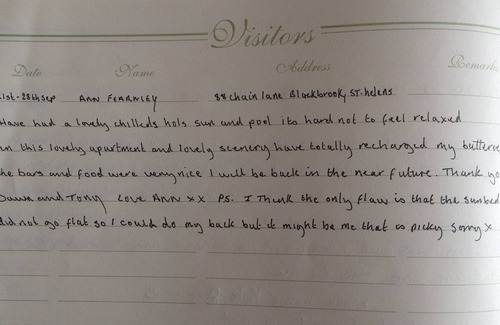 Visitors
Date Name Address Remarks
21st-28th Sep ANN FEARNLEY 88 chain lane Blackbrook St-helens
Have had a lovely chilleds hols sun and pool its hard not to feel relaxed
in this lovely apartment and lovely scenery have totally recharged my
the bars and food were very nice I will be back in the near future. Thank yo
and Tony Love Ann xx Ps. I Think the only flaw is that the sunbed
did not go flat so I could do my back but it might be me that is picky Sorry x